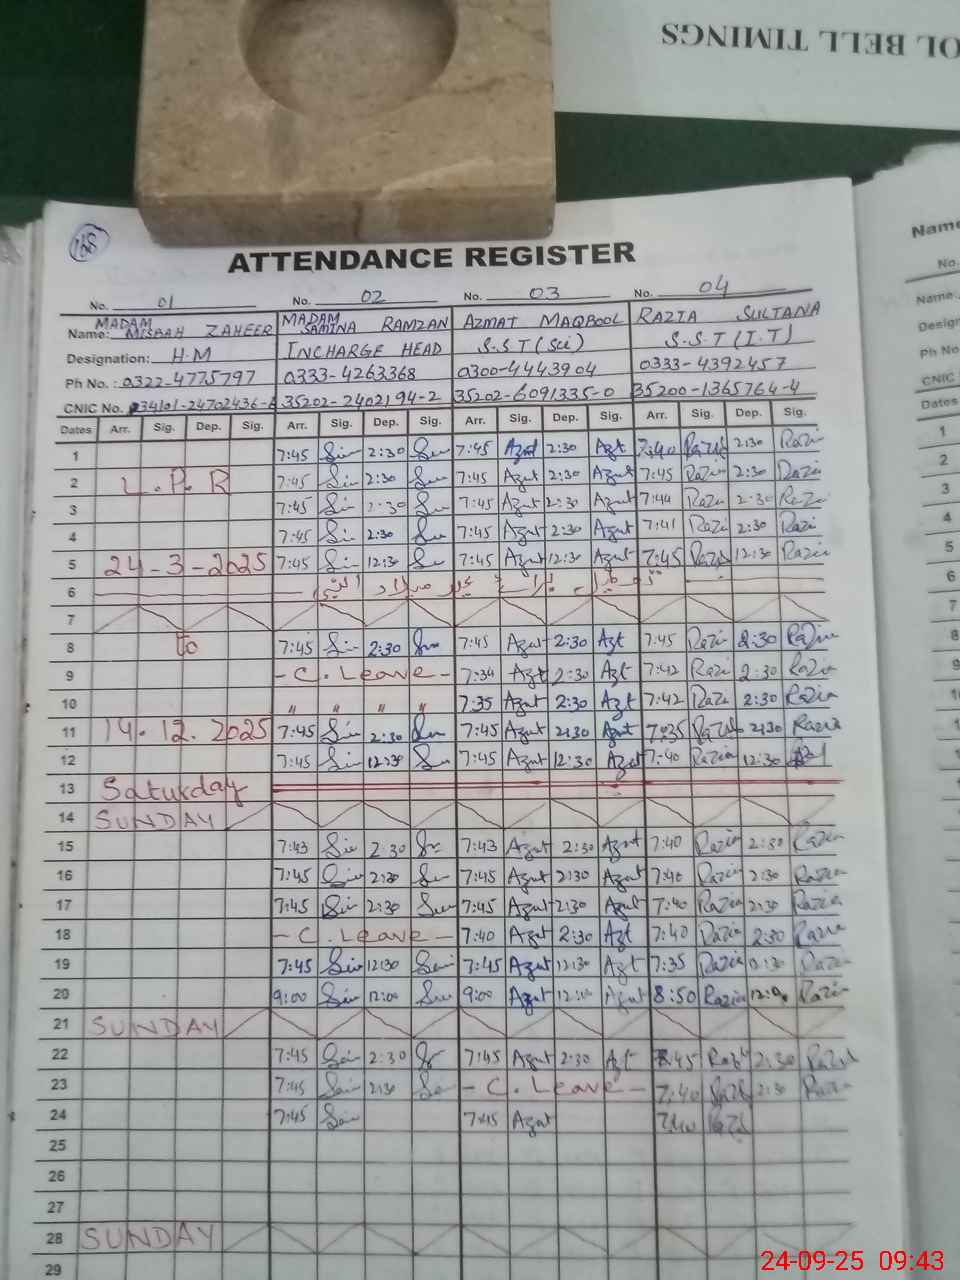 OL BELL TIMINGS
165
ATTENDANCE REGISTER
No. 01 No. 02 No. 03 No. 04
Name: MADAM MISBAH ZAHEER MADAM SAMINA RAMZAN AZMAT MAQBOOL RAZIA SULTANA
Designation: H.M INCHARGE HEAD S.S.T (Sci) S.S.T (I.T)
Ph No.: 0322-4775797 0333-4263368 0300-4443904 0333-4392457
CNIC No. 34101-24702436- 35202-2402194-2 35202-6091335-0 35200-1365764-4
Dates Arr. Sig. Dep. Sig. Arr. Sig. Dep. Sig. Arr. Sig. Dep. Sig. Arr. Sig. Dep. Sig.
1 7:45 2:30 7:45 Azmt 2:30 Azt 7:40 Razia 2:30 Razia
2 L.P.R 7:45 2:30 7:45 Azmt 2:30 Azmt 7:45 Razia 2:30 Razia
3 7:45 2:30 7:45 Azmt 2:30 Azmt 7:44 Razia 2:30 Razia
4 7:45 2:30 7:45 Azmt 2:30 Azmt 7:41 Razi 2:30 Razi
5 24-3-2025 7:45 12:30 7:45 Azmt 12:30 Azmt 7:45 Razia 12:30 Razia
6 تعطیل برائے عید میلاد النبی
7
8 to 7:45 2:30 7:45 Azmt 2:30 Azt 7:45 Razia 2:30 Razia
9 - C. Leave - 7:34 Azt 2:30 Azt 7:42 Razi 2:30 Razia
10 " " " " 7:35 Azmt 2:30 Azt 7:42 Razi 2:30 Razia
11 14.12.2025 7:45 2:30 7:45 Azmt 2:30 Azmt 7:35 Razia 2:30 Razia
12 7:45 12:30 7:45 Azmt 12:30 Azmt 7:40 Razia 12:30
13 Saturday
14 SUNDAY
15 7:43 2:30 7:43 Azmt 2:30 Azmt 7:40 Razia 2:30 Razia
16 7:45 2:30 7:45 Azmt 2:30 Azmt 7:40 Razia 2:30 Razia
17 7:45 2:30 7:45 Azmt 2:30 Azmt 7:40 Razia 2:30 Razia
18 - C. Leave - 7:40 Azmt 2:30 Azt 7:40 Razia 2:30 Razia
19 7:45 12:30 7:45 Azmt 12:30 Azt 7:35 Razia 12:30 Razia
20 9:00 12:00 9:00 Azmt 12:00 Azmt 8:50 Razia 12:00 Razia
21 SUNDAY
22 7:45 2:30 7:45 Azmt 2:30 Azt 7:45 Razia 2:30 Razia
23 7:45 2:30 - C. Leave - 7:40 Razia 2:30 Razia
24 7:45 7:45 Azmt 7:40
25
26
27
28 SUNDAY
29
Name
No.
Name
Design
Ph No
CNIC
Dates
1
2
3
4
5
6
7
8
9
10
24-09-25 09:43